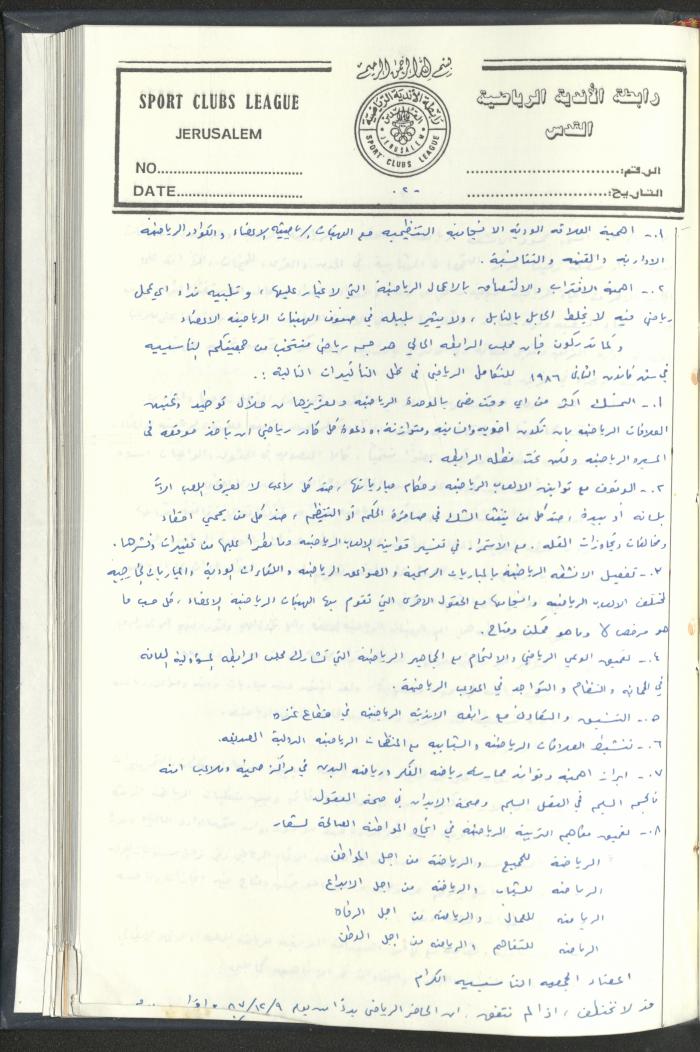 بسم الله الرحمن الرحيم
SPORT CLUBS LEAGUE
JERUSALEM
NO.
DATE
رابطة الأندية الرياضية
القدس
الرقم:
التاريخ:
رابطة الأندية الرياضية
القدس
JERUSALEM
SPORT CLUBS LEAGUE
- ٢ -
١- اهمية العلاقه الوديه الانسجاميه التنظيميه مع الهيئات الرياضيه الاعضاء والكوادر الرياضيه
الاداريه والفنيه والتنافسية .
٢- اهمية الاقتراب والالتصاق بالاعمال الرياضية التي لا غبار عليها ، وتلبية نداء اي عمل
رياضي فيه لا يخلط الحابل بالنابل ، ولا يثير بلبله في صفوف الهيئات الرياضيه الاعضاء
وكما تدركون فإن مجلس الرابطه الحالي هو جسم رياضي منتخب من جمعيتكم التأسيسيه
في كانون الثاني ١٩٨٦ للتكامل الرياضي في ظل التأكيدات التالية :.
١- التمسك اكثر من اي وقت مضى بالوحدة الرياضيه وتعزيزها من خلال توطيد وتمتين
العلاقات الرياضيه بان تكون اخويه ومتوازنة ، ودعوة كل كادر رياضي ان يأخذ موقعه في
المسيره الرياضيه ولكن تحت مظلة الرابطه .
٢- الوقوف مع قوانين الالعاب الرياضيه وحكام مبارياتها ، ضد كل لاعب لا يعرف اللعب الا
بلسانه أو بيده ، ضد كل من يثقف الشك في صافرة الحكم أو التنظيم ، ضد كل من يحمي اخطاء
ومخالفات وتجاوزات . مع الاستمرار في تفسير قوانين الالعاب الرياضيه وما يطرأ عليها من تغييرات ونشرها .
٣- تفعيل الانشطه الرياضية بالمباريات الرسمية و الرياضيه واللقاءات الودية والمباريات الخارجيه
لمختلف الالعاب الرياضيه وانسجامها مع الحقول الاخرى التي تقوم بها الهيئات الرياضيه الاعضاء ، كل حسب ما
هو مرخص له وما هو ممكن ومتاح .
٤- تعميق الوعي الرياضي والالتحام مع الجماهير الرياضية التي تشارك مجلس الرابطه المسؤولية
في والنظام والتواجد في الملاعب الرياضية .
٥- التنسيق والتعاون مع رابطه الانديه الرياضيه في قطاع غزه
٦- تنشيط العلاقات الرياضيه والشبابيه مع المنظمات الرياضيه الدولية الصديقه .
٧- ابراز اهمية وفوائد ممارسة رياضه الفكر ورياضه البدن في مراكز صحية وملاعب امنه
فالجسم السليم في العقل السليم وصحة الابدان في صحة العقول
٨- تعميق مفاهيم التربية الرياضيه في اتجاه المواطنة الصالحة لشعار
الرياضة للجميع والرياضة من اجل المواطن
الرياضه للشباب والرياضه من اجل الابداع
الرياضه للعمال والرياضه من اجل الرفاه
الرياضه للتفاهم والرياضه من اجل الوطن
اعضاء الجمعيه التأسيسيه الكرام
قد لا نختلف ، اذا لم نتفق ، ان الحاضر الرياضي بدءا من يوم ٨٧/١٢/٩